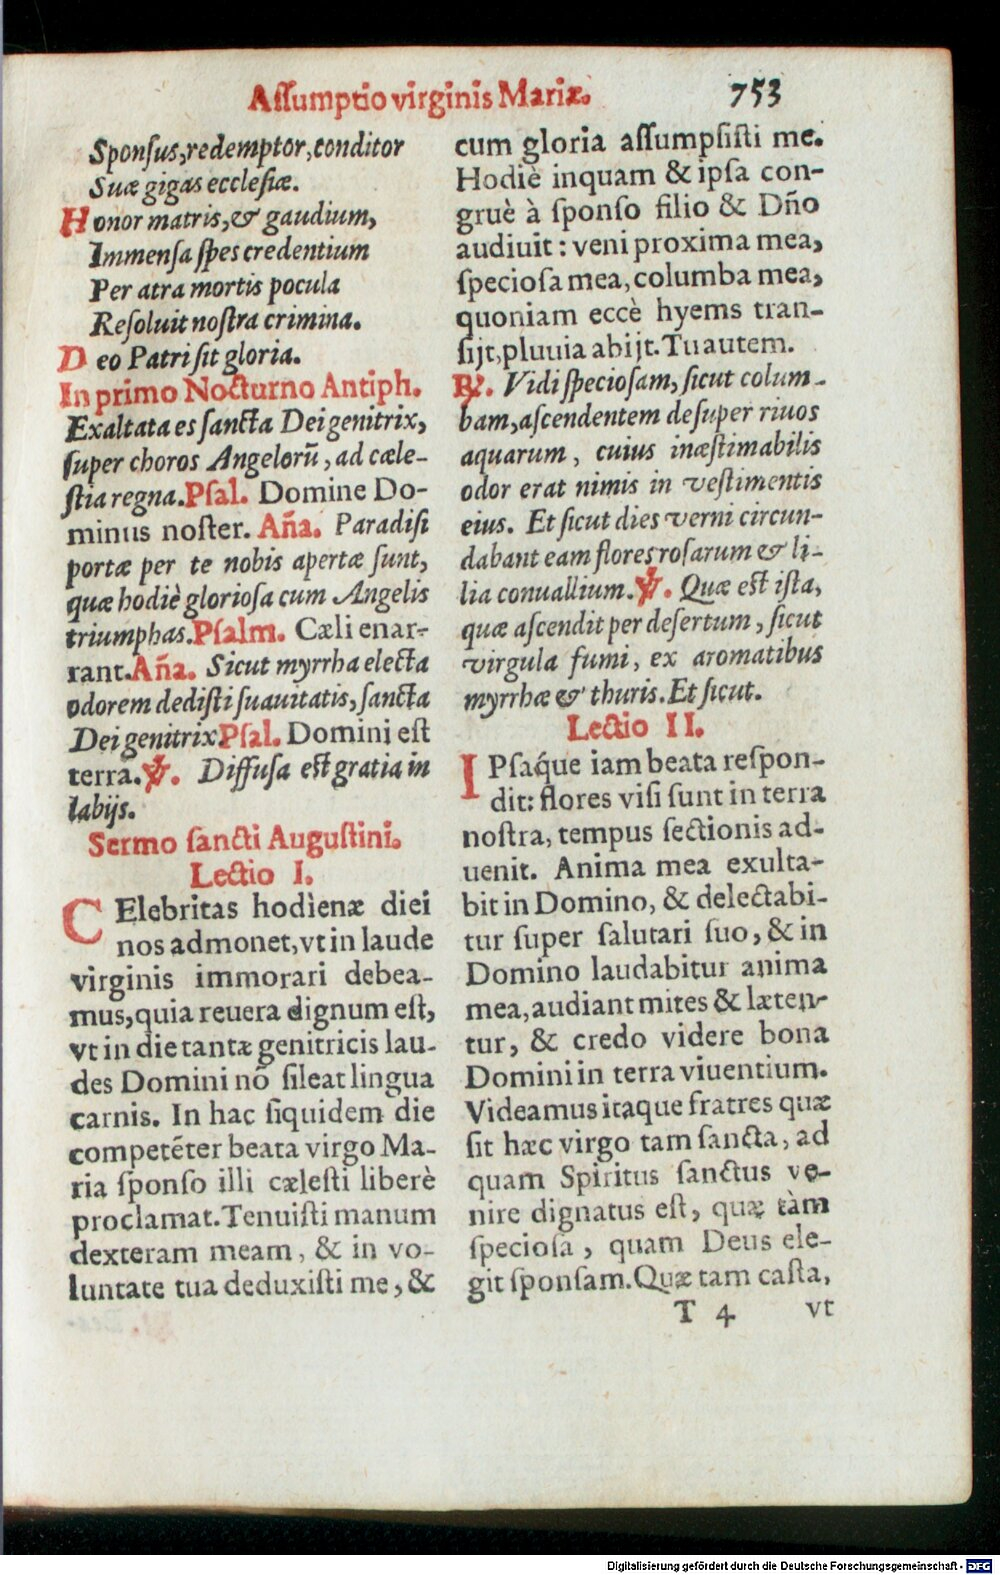 Aſſumptio virginis Mariæ. 753
Sponſus, redemptor, conditor
Suæ gigas eccleſiæ.
Honor matris, & gaudium,
Immenſa ſpes credentium
Per atra mortis pocula
Reſoluit noſtra crimina.
Deo Patri ſit gloria.
In primo Nocturno Antiph.
Exaltata es ſancta Dei genitrix,
ſuper choros Angelorū, ad cæle-
ſtia regna. Pſal. Domine Do-
minus noſter. Aña. Paradiſi
portæ per te nobis apertæ ſunt,
quæ hodiè glorioſa cum Angelis
triumphas. Pſalm. Cæli enar-
rant. Aña. Sicut myrrha electa
odorem dediſti ſuauitatis, ſancta
Dei genitrix Pſal. Domini eſt
terra. ℣. Diffuſa eſt gratia in
labijs.
Sermo ſancti Auguſtini.
Lectio I.
CElebritas hodienæ diei
nos admonet, vt in laude
virginis immorari debea-
mus, quia reuera dignum eſt,
vt in die tantæ genitricis lau-
des Domini nō ſileat lingua
carnis. In hac ſiquidem die
competēter beata virgo Ma-
ria ſponſo illi cæleſti liberè
proclamat. Tenuiſti manum
dexteram meam, & in vo-
luntate tua deduxiſti me, &
cum gloria aſſumpſiſti me.
Hodiè inquam & ipſa con-
gruè à ſponſo filio & Dño
audiuit : veni proxima mea,
ſpecioſa mea, columba mea,
quoniam eccè hyems tran-
ſijt, pluuia abijt. Tu autem.
℟. Vidi ſpecioſam, ſicut colum-
bam, aſcendentem deſuper riuos
aquarum, cuius inæſtimabilis
odor erat nimis in veſtimentis
eius. Et ſicut dies verni circun-
dabant eam flores roſarum & li-
lia conuallium. ℣. Quæ eſt iſta,
quæ aſcendit per deſertum, ſicut
virgula fumi, ex aromatibus
myrrhæ & thuris. Et ſicut.
Lectio II.
IPſáque iam beata reſpon-
dit: flores viſi ſunt in terra
noſtra, tempus ſectionis ad-
uenit. Anima mea exulta-
bit in Domino, & delectabi-
tur ſuper ſalutari ſuo, & in
Domino laudabitur anima
mea, audiant mites & læten-
tur, & credo videre bona
Domini in terra viuentium.
Videamus itaque fratres quæ
ſit hæc virgo tam ſancta, ad
quam Spiritus ſanctus ve-
nire dignatus eſt, quæ tàm
ſpecioſa, quam Deus ele-
git ſponſam. Quæ tam caſta,
T 4 vt
Digitalisierung gefördert durch die Deutsche Forschungsgemeinschaft - DFG